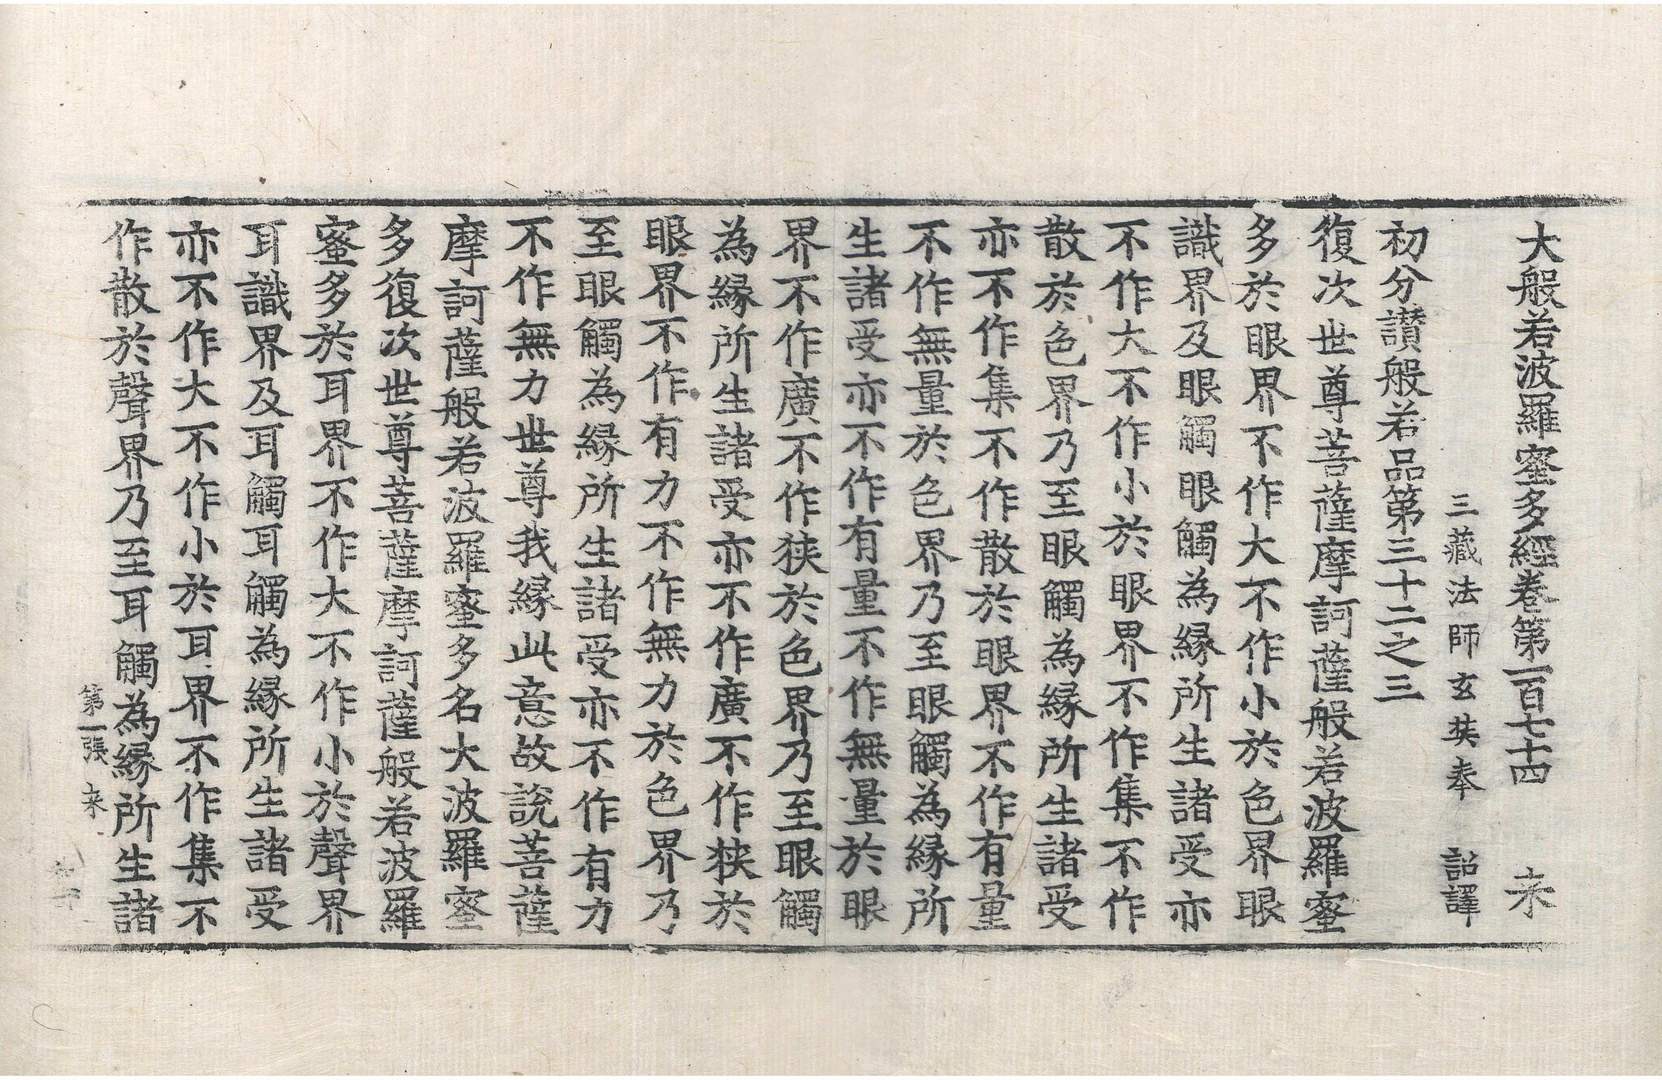 大般若波羅蜜多經卷第一百七十四 来
三藏法師玄奘奉 詔譯
初分讃般若品第三十二之三
復次世尊菩薩摩訶薩般若波羅蜜
多於眼界不作大不作小於色界眼
識界及眼觸眼觸為緣所生諸受亦
不作大不作小於眼界不作集不作
散於色界乃至眼觸為緣所生諸受
亦不作集不作散於眼界不作有量
不作無量於色界乃至眼觸為緣所
生諸受亦不作有量不作無量於眼
界不作廣不作狹於色界乃至眼觸
為緣所生諸受亦不作廣不作狹於
眼界不作有力不作無力於色界乃
至眼觸為緣所生諸受亦不作有力
不作無力世尊我緣此意故說菩薩
摩訶薩般若波羅蜜多名大波羅蜜
多復次世尊菩薩摩訶薩般若波羅
蜜多於耳界不作大不作小於聲界
耳識界及耳觸耳觸為緣所生諸受
亦不作大不作小於耳界不作集不
作散於聲界乃至耳觸為緣所生諸
第一張 来